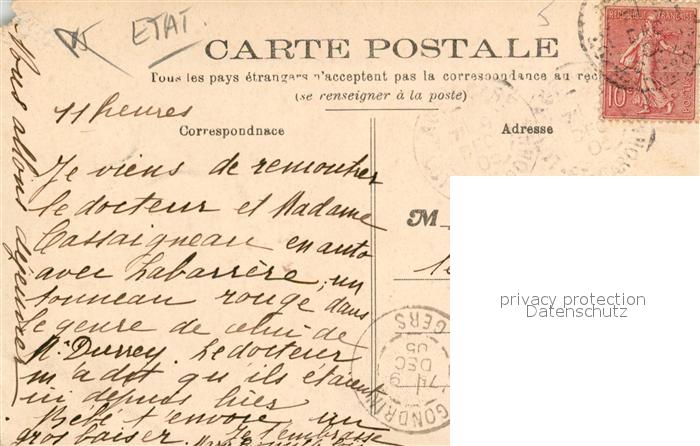 ETAT.
CARTE POSTALE
Tous les pays étrangers n'acceptent pas la correspondance au rec
(se renseigner à la poste)
11 heures
Correspondnace
Adresse
Je viens de remontrer
le docteur et Madame
Cassaigneau en auto
avec Labarrère, un
tonneau rouge dans
le genre de celui de
Mr Durrey. Le docteur
m'a dit qu'ils étaient
ici depuis hier
Bébé t'envoie un
gros baiser. Je t'embrasse
Nous allons déjeuner
M
GONDRIN
GERS
9
DEC
05
10
privacy protection
Datenschutz